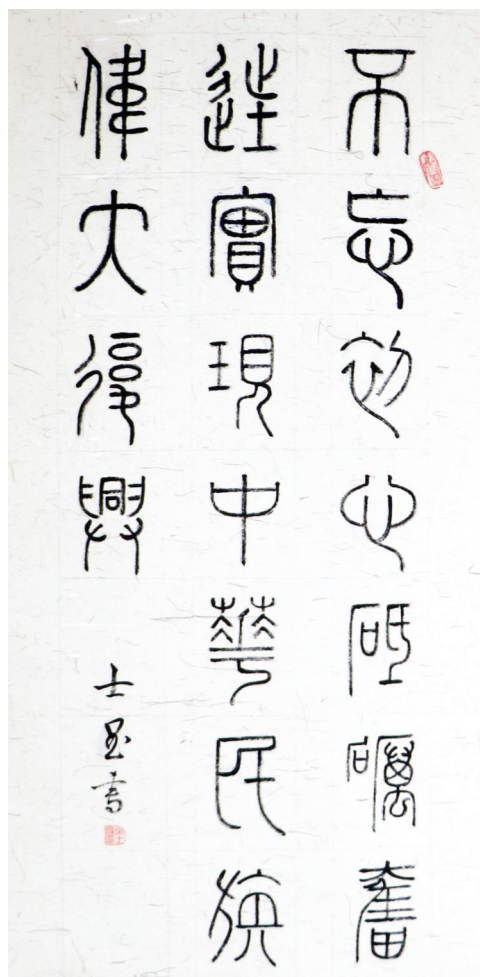 不忘初心砥礪奮
進實現中華民族
偉大復興
士墨書